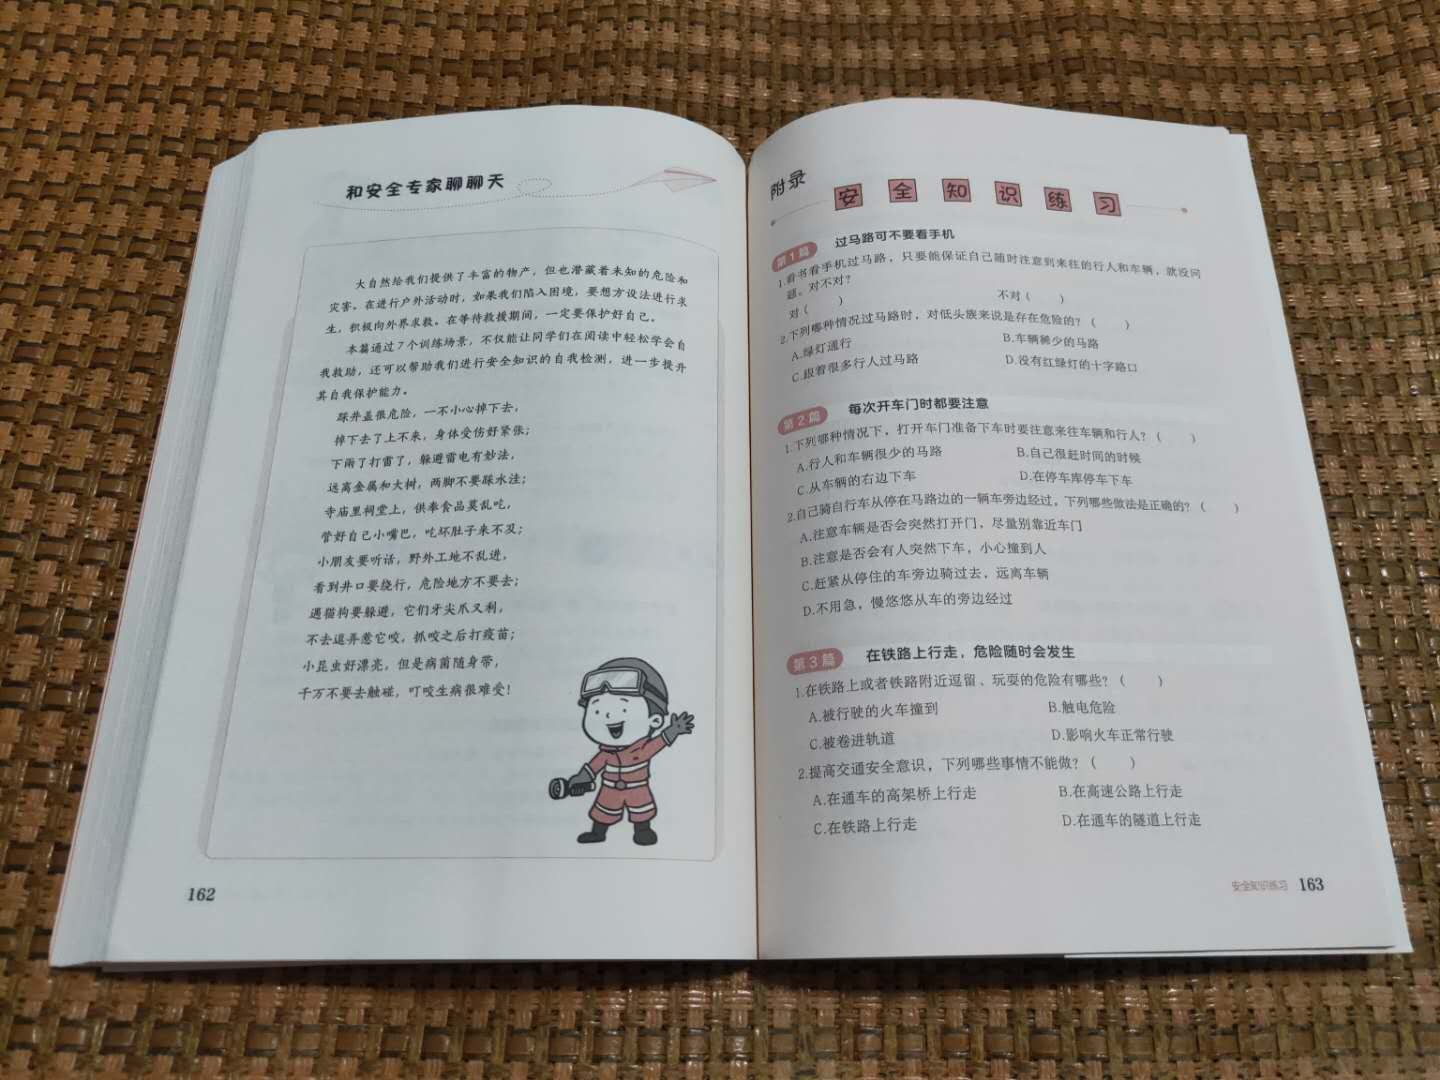 和安全专家聊聊天
大自然给我们提供了丰富的物产，但也潜藏着未知的危险和
灾害。在进行户外活动时，如果我们陷入困境，要想方设法进行求
生，积极向外界求救。在等待救援期间，一定要保护好自己。
本篇通过7个训练场景，不仅能让同学们在阅读中轻松学会自
我救助，还可以帮助我们进行安全知识的自我检测，进一步提升
其自我保护能力。
踩井盖很危险，一不小心掉下去，
掉下去了上不来，身体受伤好紧张；
下雨了打雷了，躲避雷电有妙法，
远离金属和大树，两脚不要踩水洼；
寺庙里祠堂上，供奉食品莫乱吃，
管好自己小嘴巴，吃坏肚子来不及；
小朋友要听话，野外工地不乱进，
看到井口要绕行，危险地方不要去；
遇猫狗要躲避，它们牙尖爪又利，
不去逗弄惹它咬，抓咬之后打疫苗；
小昆虫好漂亮，但是病菌随身带，
千万不要去触碰，叮咬生病很难受！
162
附录
安全知识练习
第1篇 过马路可不要看手机
1.看书看手机过马路，只要能保证自己随时注意到来往的行人和车辆，就没问
题。对不对？
对（ ） 不对（ ）
2.下列哪种情况过马路时，对低头族来说是存在危险的？（ ）
A.绿灯通行 B.车辆稀少的马路
C.跟着很多行人过马路 D.没有红绿灯的十字路口
第2篇 每次开车门时都要注意
1.下列哪种情况下，打开车门准备下车时要注意来往车辆和行人？（ ）
A.行人和车辆很少的马路 B.自己很赶时间的时候
C.从车辆的右边下车 D.在停车库停车下车
2.自己骑自行车从停在马路边的一辆车旁边经过，下列哪些做法是正确的？（ ）
A.注意车辆是否会突然打开门，尽量别靠近车门
B.注意是否会有人突然下车，小心撞到人
C.赶紧从停住的车旁边骑过去，远离车辆
D.不用急，慢悠悠从车的旁边经过
第3篇 在铁路上行走，危险随时会发生
1.在铁路上或者铁路附近逗留、玩耍的危险有哪些？（ ）
A.被行驶的火车撞到 B.触电危险
C.被卷进轨道 D.影响火车正常行驶
2.提高交通安全意识，下列哪些事情不能做？（ ）
A.在通车的高架桥上行走 B.在高速公路上行走
C.在铁路上行走 D.在通车的隧道上行走
安全知识练习 163